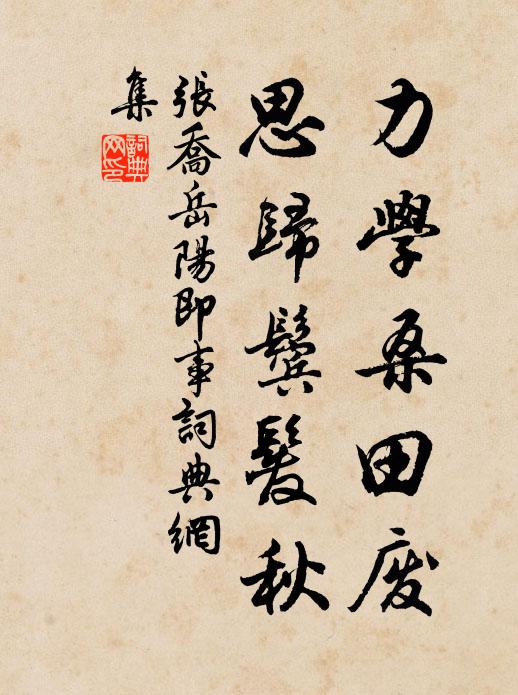 力學桑田廢
思歸鬢髮秋
張喬岳陽即事詞典網
集
詞典
网印